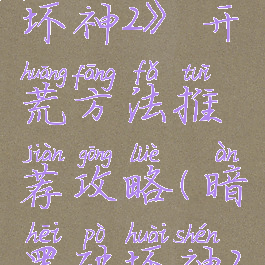 坏神2》 开
huāng fāng fǎ tuī
荒方法推
jiàn gōng lüè àn
荐攻略(暗
hēi pò huài shén
黑破坏神2